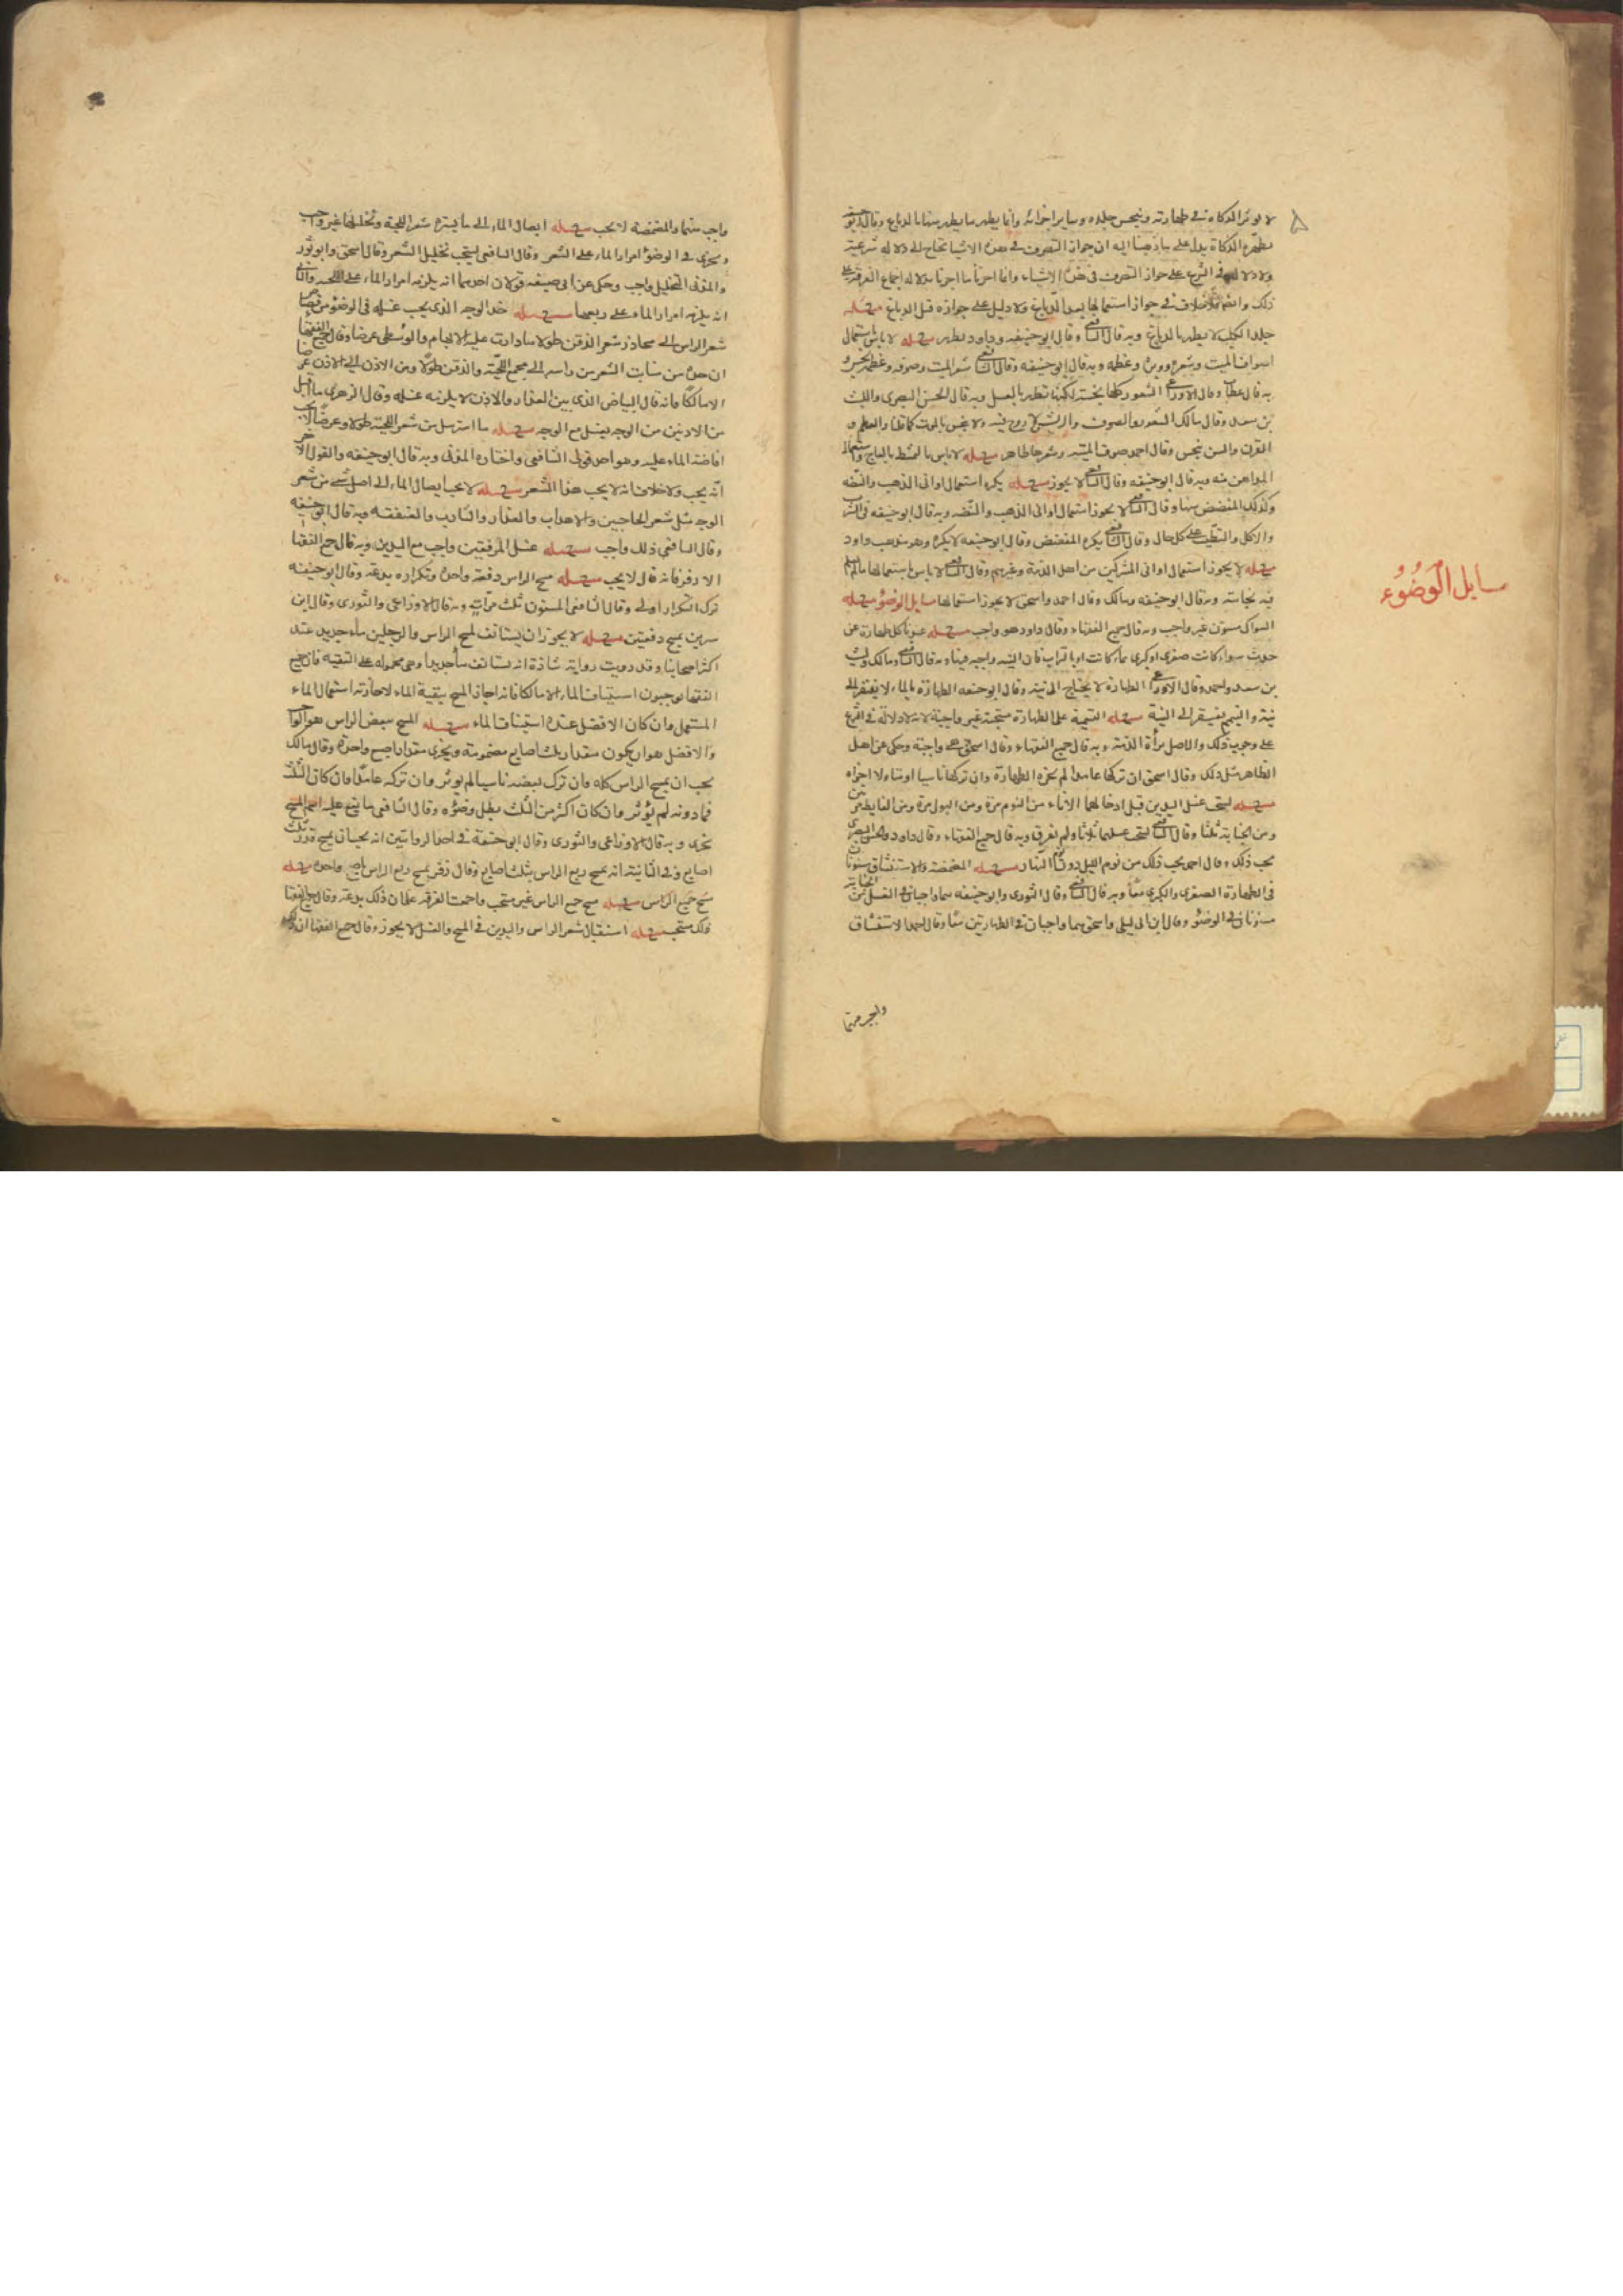 لا يوثر الذكاة في طهارته وينجس جلده وساير اجزائه وانما يطهر ما يطهر منها بالدباغ وقال ابو حنيفه
يطهر بالذكاة يدل على ما ذهبنا اليه ان جواز التصرف في هذه الاشيا يحتاج الى دلاله شرعيه
ولا دلاله في الشرع على جواز التصرف في هذه الاشياء وانما اجزنا ما اجزنا بدلاله اجماع الفرقة على
ذلك وايضا فلا خلاف في جواز استعمالها بعد الدباغ ولا دليل على جوازه قبل الدباغ مسئله
جلد الكلب لا يطهر بالدباغ وبه قال الشافعي وقال ابو حنيفه وداود يطهر مسئله لا باس باستعمال
اصواف الميت وشعره ووبره وعظمه وبه قال ابو حنيفه وقال الشافعي شعر الميت وصوفه وعظمه نجس و
به قال عطا وقال الاوزاعي الشعور كلها نجسة لكنها تطهر بالغسل وبه قال الحسن البصري والليث
بن سعد وقال مالك الشعر والصوف والريش لا روح فيه ولا ينجس بالموت كما قلنا والعظم و
القرن والسن ينجس وقال احمد صوف الميتة وشعرها طاهر مسئله لا باس بالمشط بالعاج واستعمال
المداهن منه وبه قال ابو حنيفه وقال الشافعي لا يجوز مسئله يكره استعمال اواني الذهب والفضه
وكذلك المفضض منها وقال الشافعي لا يجوز استعمال اواني الذهب والفضه وبه قال ابو حنيفه في الشرب
والاكل والتطيب على كل حال وقال الشافعي يكره المفضض وقال ابو حنيفه لا يكره وهو مذهب داود
مسئله لا يجوز استعمال اواني المشركين من اهل الذمة وغيرهم وقال الشافعي لا باس باستعمالها ما لم يعلم
فيه نجاسة وبه قال ابو حنيفه ومالك وقال احمد واسحق لا يجوز استعمالها مسايل الوضوء مسئله
السواك مسنون غير واجب وبه قال جميع الفقهاء وقال داود هو واجب مسئله عندنا كل طهارة عن
حدث سواء كانت صغرى او كبرى بماء كانت او بالتراب فان النيه واجبه فيها وبه قال الشافعي ومالك وليث
بن سعد واحمد وقال الاوزاعي الطهارة لا يحتاج الى نية وقال ابو حنيفه الطهارة بالماء لا يفتقر الى
نية والتيمم يفتقر الى النية مسئله التسمية على الطهارة مستحبة غير واجبة لانه لا دلالة في الشرع
على وجوب ذلك والاصل براة الذمة وبه قال جميع الفقهاء وقال اسحق هي واجبة وحكي عن اهل
الظاهر مثل ذلك وقال اسحق ان تركها عامدا لم يجزه الطهارة وان تركها ناسيا او متاولا اجزاه
مسئله يستحب غسل اليدين قبل ادخالهما الاناء من النوم مرة ومن البول مرة ومن الغايط مرتين
ومن الجنابة ثلثا وقال الشافعي يستحب غسلهما ثلاثا ولم يفرق وبه قال جميع الفقهاء وقال داود والحسن البصري
يجب ذلك وقال احمد يجب ذلك من نوم الليل دون نوم النهار مسئله المضمضة والاستنشاق مسنونان
في الطهارة الصغرى والكبرى معا وبه قال الشافعي وقال الثوري وابو حنيفه هما واجبان في الغسل من الجنابة
مسنونان في الوضوء وقال ابن ابي ليلى واسحق هما واجبان في الطهارتين معا وقال احمد الاستنشاق
مسايل الوضوء
واجب منهما والمضمضة لا يجب مسئله ايصال الماء الى ما يستره شعر اللحية وتخليلها غير واجب
ويجزي في الوضوء امرار الماء على الشعر وقال الشافعي يستحب تخليل الشعر وقال اسحق وابو ثور
والمزني التخليل واجب وحكي عن ابي حنيفه قولان احدهما انه يلزمه امرار الماء على اللحية والثاني
انه يلزمه امرار الماء على ربعها مسئله حد الوجه الذي يجب غسله في الوضوء من قصاص
شعر الراس الى محاذر شعر الذقن طولا وما دارت عليه الابهام والوسطى عرضا وقال جميع الفقها
ان حده من منابت الشعر من راسه الى مجمع اللحية والذقن طولا ومن الاذن الى الاذن عرضا
الا مالكا فانه قال البياض الذي بين العذار والاذن لا يلزمه غسله وقال الزهري ما اقبل
من الاذنين من الوجه يغسل مع الوجه مسئله ما استرسل من شعر اللحية طولا وعرضا لا يجب
افاضة الماء عليه وهو احد قولي الشافعي واختاره المزني وبه قال ابو حنيفه والقول الاخر
انه يجب ولا خلاف انه لا يجب هذا الشعر مسئله لا يجب ايصال الماء الى اصل شي من شعر
الوجه مثل شعر الحاجبين والاهداب والعذار والشارب والعنفقه وبه قال ابو حنيفه
وقال الشافعي ذلك واجب مسئله غسل المرفقين واجب مع اليدين وبه قال جميع الفقها
الا زفر فانه قال لا يجب مسئله مسح الراس دفعة واحدة وتكراره بدعة وقال ابو حنيفه
ترك التكرار اولى وقال الشافعي المسنون ثلث مرات وبه قال الاوزاعي والثوري وقال ابن
سيرين يمسح دفعتين مسئله لا يجوز ان يستانف لمسح الراس والرجلين ماء جديد عند
اكثر اصحابنا وقد رويت رواية شاذة انه يستانف ماء جديدا وهي محمولة على التقيه فان جميع
الفقها يوجبون استيناف الماء الا مالكا فانه اجاز المسح ببقية الماء لاجازته استعمال الماء
المستعمل وان كان الافضل عنده استيناف الماء مسئله المسح ببعض الراس هو الواجب
والافضل هو ان يكون مقدار ثلث اصابع مضمومة ويجزي مقدار اصبع واحدة وقال مالك
يجب ان يمسح الراس كله وان ترك بعضه ناسيا لم يوثر وان تركه عامدا وان كان الثلث
فما دونه لم يوثر وان كان اكثر من الثلث بطل وضوءه وقال الشافعي ما يقع عليه اسم المسح
يجزي وبه قال الاوزاعي والثوري وقال ابو حنيفة في احد الروايتين انه يجب ان يمسح قدر ثلث
اصابع وفي الثانية انه يمسح ربع الراس بثلث اصابع وقال زفر يمسح ربع الراس باصبع واحدة مسئله
مسح جميع الراس مسئله مسح جميع الراس غير مستحب واجمعت الفرقة على ان ذلك بدعة وقال جميع الفقها
ذلك مستحب مسئله استقبال شعر الراس واليدين في المسح والغسل لا يجوز وقال جميع الفقها ان ذلك